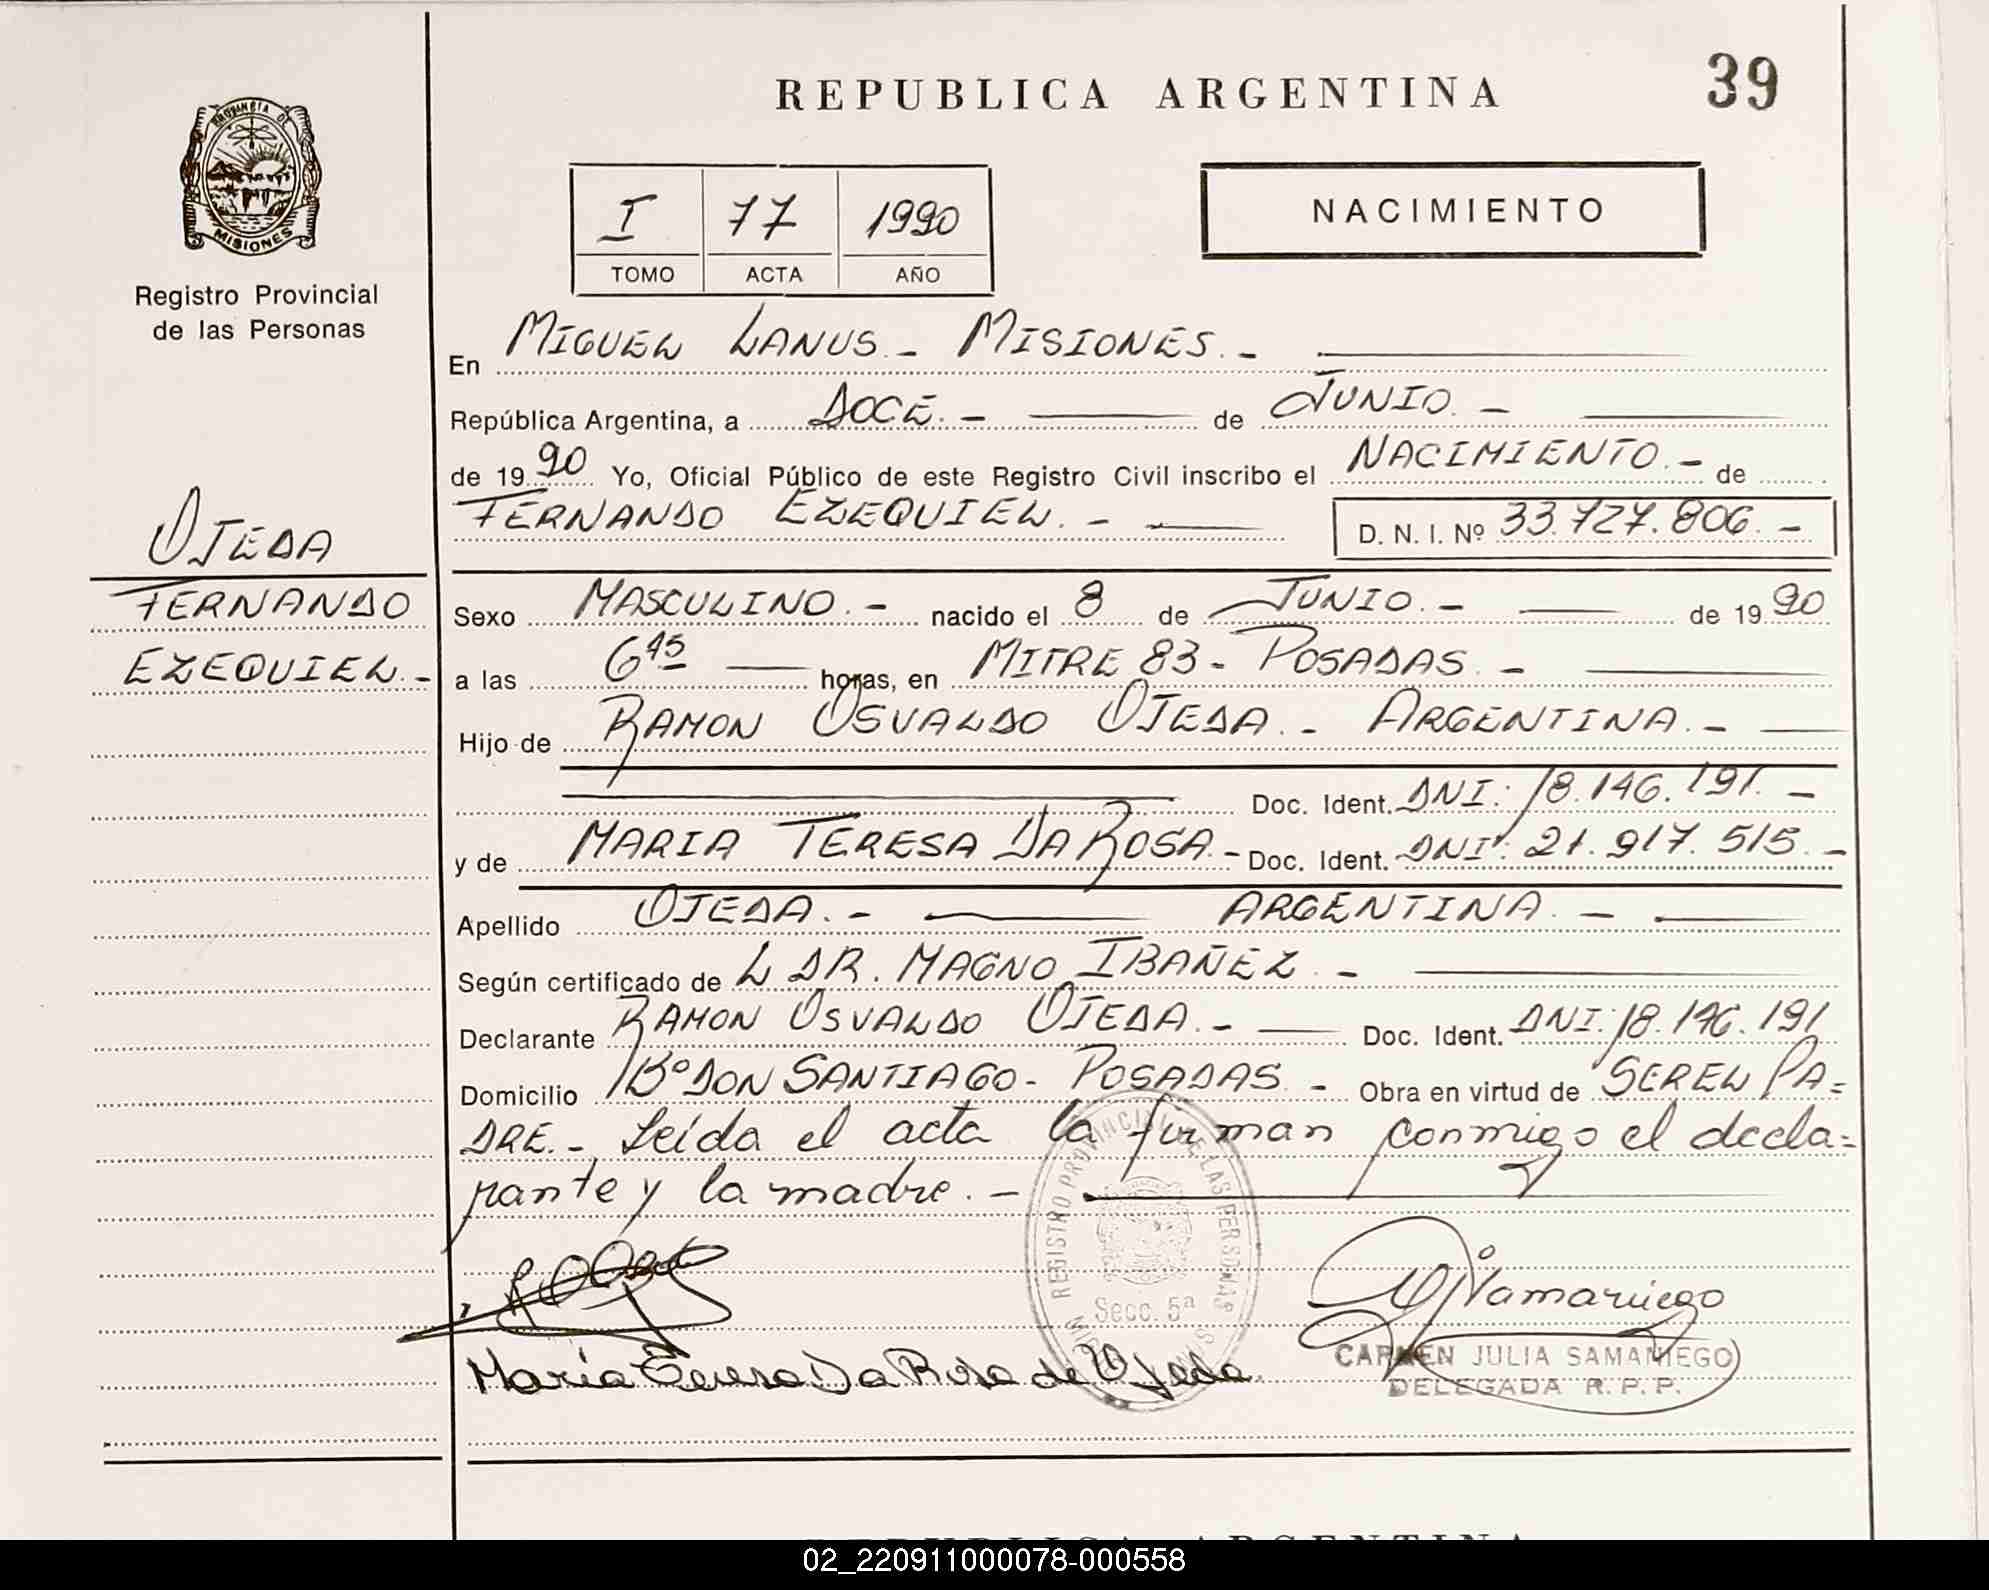 REPUBLICA ARGENTINA
39
PROVINCIA DE
MISIONES
Registro Provincial
de las Personas
I 77 1990
TOMO ACTA AÑO
NACIMIENTO
En MIGUEL LANUS.- MISIONES.-
República Argentina, a DOCE.- de JUNIO.-
de 1990 Yo, Oficial Público de este Registro Civil inscribo el NACIMIENTO.- de
FERNANDO EZEQUIEL.- D. N. I. Nº 33.727.806.-
OJEDA
FERNANDO
EZEQUIEL.-
Sexo MASCULINO.- nacido el 8 de JUNIO.- de 1990
a las 6 45 horas, en MITRE 83- POSADAS.-
Hijo de RAMON OSVALDO OJEDA.- ARGENTINA.-
Doc. Ident. DNI: 18.146.191.-
y de MARIA TERESA DA ROSA.- Doc. Ident. DNI: 21.917.515.-
Apellido OJEDA.- ARGENTINA.-
Según certificado de L DR. MAGNO IBAÑEZ.-
Declarante RAMON OSVALDO OJEDA.- Doc. Ident. DNI: 18.146.191
Domicilio Bº DON SANTIAGO- POSADAS.- Obra en virtud de SER EL PA=
DRE.- Leída el acta la firman conmigo el decla=
rante y la madre.-
REGISTRO PROVINCIAL DE LAS PERSONAS
Secc. 5ª
María Teresa Da Rosa de Ojeda.
CARMEN JULIA SAMANIEGO
DELEGADA R. P. P.
REPUBLICA ARGENTINA
02_220911000078-000558